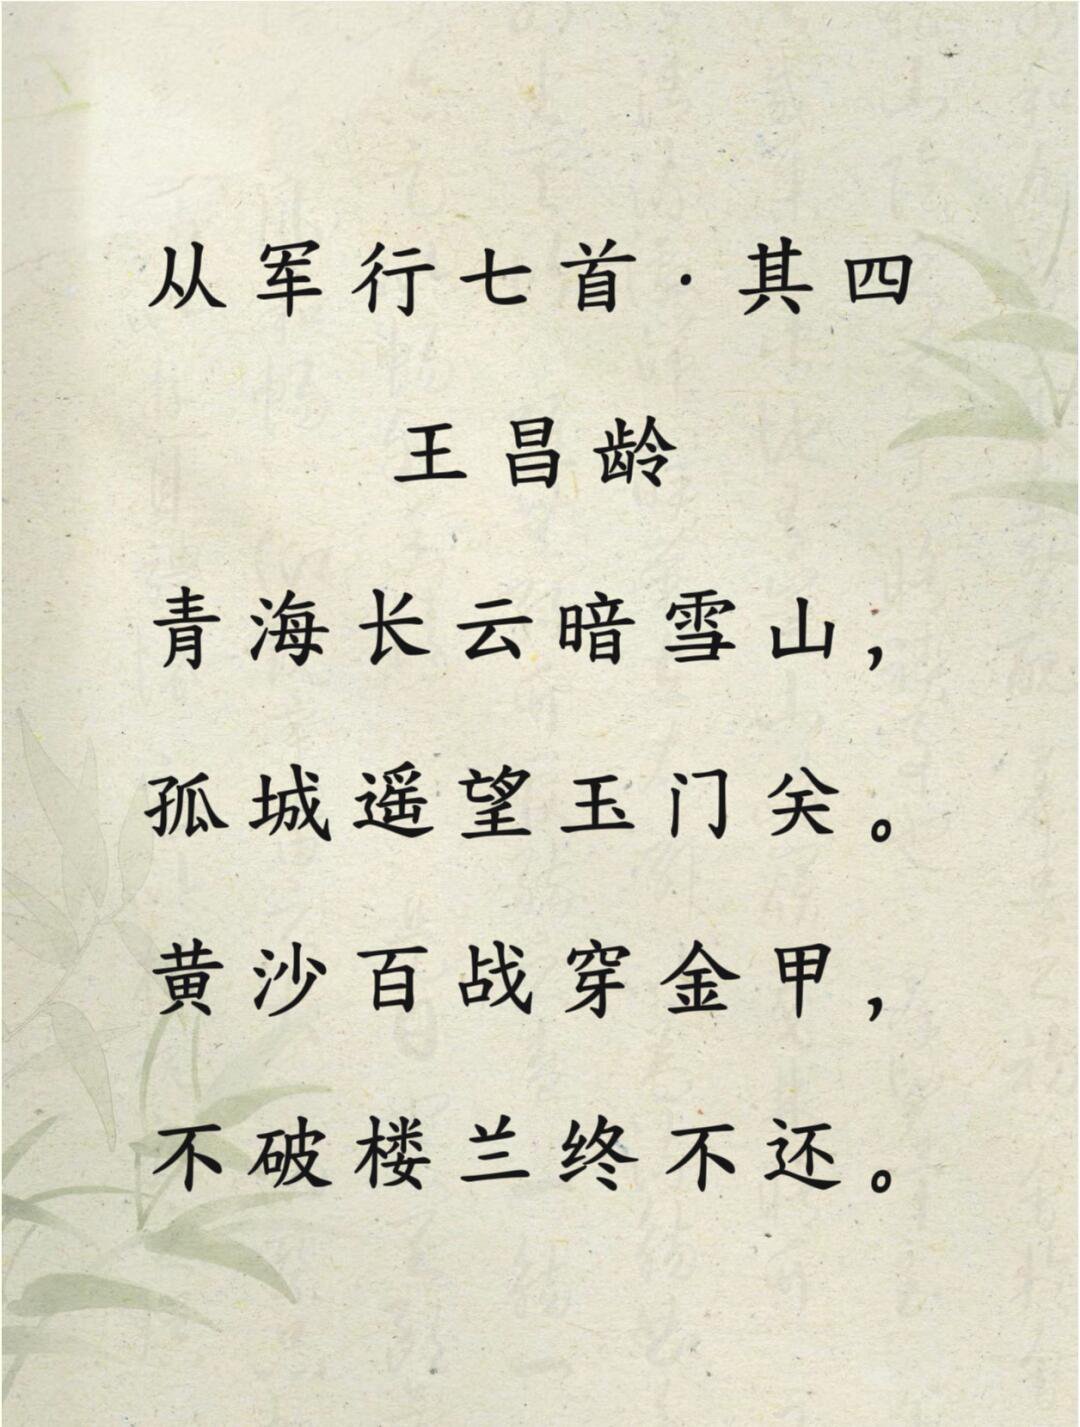 从军行七首·其四
王昌龄
青海长云暗雪山，
孤城遥望玉门关。
黄沙百战穿金甲，
不破楼兰终不还。